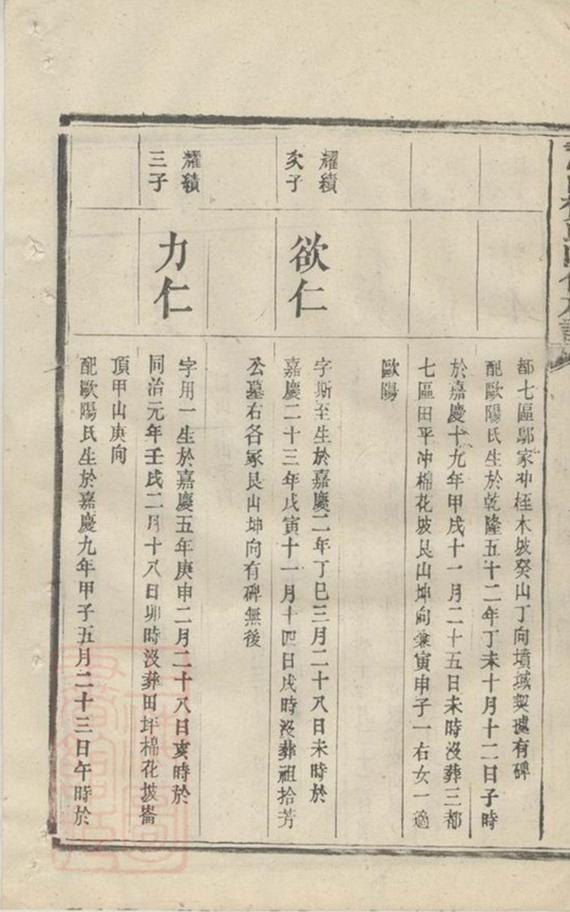 都七區鄔家冲桎木坡癸山丁向墳域契據有碑
配歐陽氏生於乾隆五十二年丁未十月十二日子時
於嘉慶十九年甲戌十一月二十五日未時沒葬三都
七區田平冲棉花坡艮山坤向兼寅申子一右女一適
歐陽
耀績
次子
欲仁
字斯至生於嘉慶二年丁巳三月二十八日未時於
嘉慶二十三年戊寅十一月十四日戌時沒葬祖拾芳
公墓右各冢艮山坤向有碑無後
耀績
三子
力仁
字用一生於嘉慶五年庚申二月二十八日亥時於
同治元年壬戌二月十八日卯時沒葬田坪棉花坡崙
頂甲山庚向
配歐陽氏生於嘉慶九年甲子五月二十三日午時於